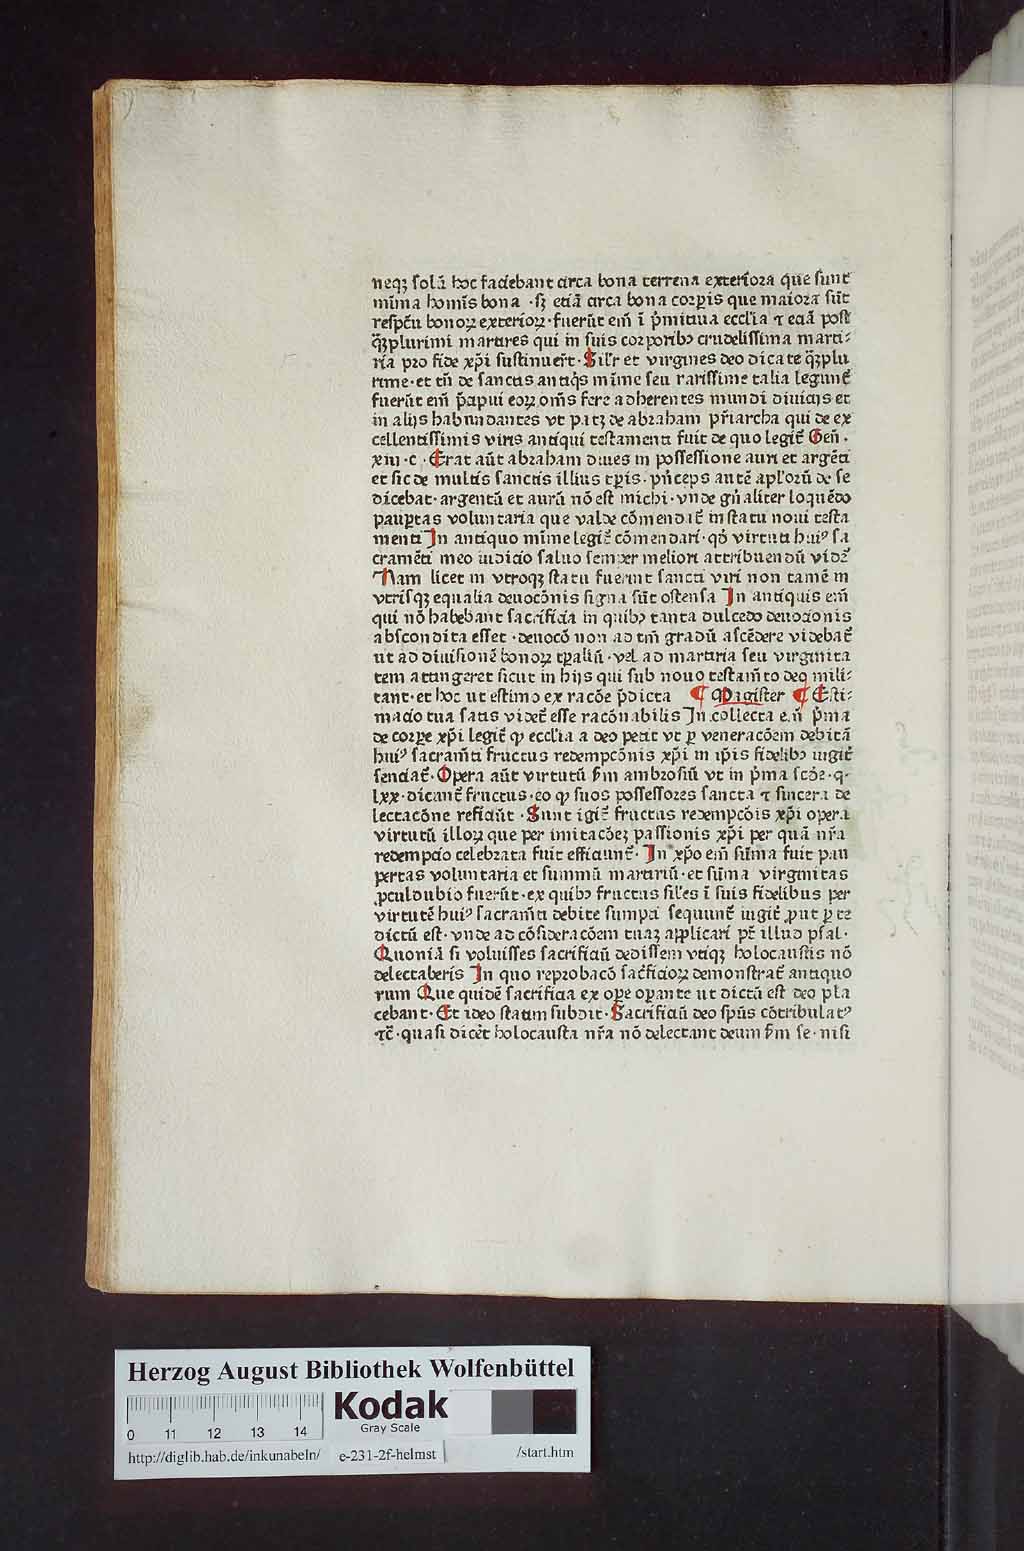 neqȝ solū hoc faciebant circa bona terrena exteriora que sunt
mīma homīs bona · sȝ etiā circa bona corpis que maiora sūt
respc̄tu bonoꝝ exterioꝝ · fuerūt em̄ ī p̄mitiua eccl'ia ⁊ eciā post
qȝplurimi martires qui in suis corporibꝫ crudelissima marti⸗
ria pro fide xp̄i sustinuer̄t · Silr̄ et virgines deo dicate qȝplu
rime · et tn̄ de sanctis antiq̄s mīme seu rarissime talia legunt̄
fuerūt em̄ p̄cipui eoꝝ om̄s fere adherentes mundi diuicijs et
in alijs habundantes vt patȝ de abraham pr̄iarcha qui de ex
cellentissimis viris antiqui testamenti fuit de quo legit̄ Gen̄ ·
xiij · c · Erat aūt abraham diues in possessione auri et argēti
et sic de multis sanctis illius tp̄is · pn̄ceps autē apl'orū de se
dicebat · argentū et aurū nō est michi · vnde gn̄aliter loquēdo
pauꝑtas voluntaria que valde cōmendat̄ in statu noui testa
menti In antiquo mīme legit̄ cōmendari · qd̄ virtuti huiꝰ sa
cramēti meo iudicio saluo semper meliori attribuendū videt̄
Nam licet in vtroqȝ statu fuerint sancti viri non tamē in
vtrisqȝ equalia deuocōnis signa sūt ostensa In antiquis em̄
qui nō habebant sacrificia in quibꝫ tanta dulcedo deuocionis
abscondita esset · deuocō non ad tm̄ gradū ascēdere videbat̄
ut ad diuisionē bonoꝝ tp̄aliū · vel ad martiria seu virginita
tem attingeret sicut in hijs qui sub nouo testam̄to deo mili⸗
tant · et hoc ut estimo ex racōe p̄dicta ¶ Magister ¶ Esti⸗
macio tua satis videt̄ esse racōnabilis In collecta em̄ p̄ma
de corꝑe xp̄i legit̄ ꝙ eccl'ia a deo petit vt ꝑ veneracōem debitā
huiꝰ sacram̄ti fructus redempcōnis xp̄i in ip̄is fidelibꝫ iugit̄
senciat̄ · Opera aūt virtutū s̄m ambrosiū vt in p̄ma sc̄de · q ·
lxx · dicant̄ fructus · eo ꝙ suos possessores sancta ⁊ sincera de
lectacōne reficiūt · Sunt igit̄ fructus redempcōis xp̄i opera
virtutū illoꝝ que per imitacōeȝ passionis xp̄i per quā nr̄a
redempcio celebrata fuit efficiunt̄ · In xp̄o em̄ sūma fuit pau
pertas voluntaria et summū martiriū · et sūma virginitas
ꝓculdubio fuerūt · ex quibꝫ fructus sil'es ī suis fidelibus per
virtutē huiꝰ sacram̄ti debite sumpti sequunt̄ iugit̄ ꝓut ꝑ te
dictū est · vnde ad cōsideracōem tuaȝ applicari pt̄ illud psal ·
Quoniā si voluisses sacrificiū dedissem vtiqȝ holocaustis nō
delectaberis In quo reprobacō sac̄ficioꝝ demonstrat̄ antiquo
rum Que quidē sacrificia ex oꝑe oꝑante ut dictū est deo pla
cebant · Et ideo statim subdit · Sacrificiū deo sp̄us cōtribulatꝰ
⁊c̄ · quasi dicēt holocausta nr̄a nō delectant deum s̄m se · nisi
Herzog August Bibliothek Wolfenbüttel
0 11 12 13 14
Kodak
Gray Scale
http://diglib.hab.de/inkunabeln/ e-231-2f-helmst /start.htm